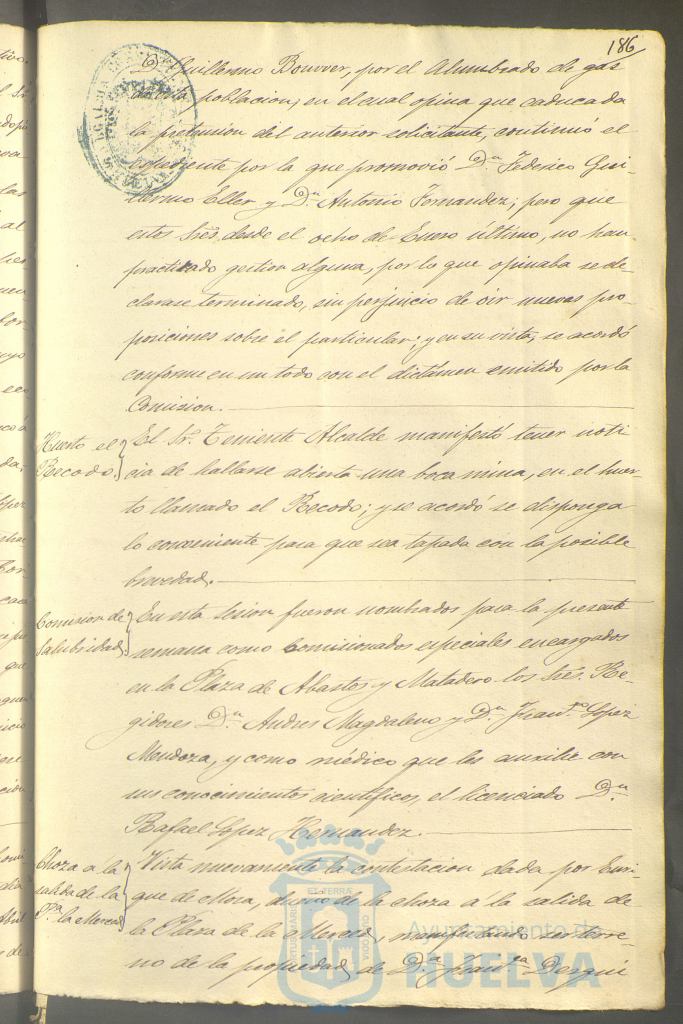 186
Dⁿ Guillermo Bouvver, por el Alumbrado de gas
de esta poblacion; en el cual opina que caducada
la pretension del anterior solicitante, continuó el
espediente por la que promovió Dⁿ Federico Gui-
llermo Eller y Dⁿ Antonio Fernandez; pero que
estos Sres. desde el ocho de Enero último, no han
practicado gestion alguna, por lo que opinaba se de-
clarase terminado, sin perjuicio de oir nuevas pro-
posiciones sobre el particular; y en su vista, se acordó
conforme en un todo con el dictámen emitido por la
Comision.
Huerto el
Recodo.
El Sr. Teniente Alcalde manifestó tener noti-
cia de hallarse abierta una boca mina, en el huer-
to llamado el Recodo; y se acordó se disponga
lo conveniente para que sea tapada con la posible
brevedad.
Comision de
Salubridad.
En esta sesion fueron nombrados para la presente
semana como Comisionados especiales encargados
en la Plaza de Abastos y Matadero los Sres. Re-
gidores Dⁿ Andres Magdaleno y Dⁿ Franᶜᵒ Lopez
Mendoza, y como médico que les auxilie con
sus conocimientos cientificos, el licenciado Dⁿ
Rafael Lopez Hernandez.
Choza á la
salida de la
Pᵃ la Merced
Vista nuevamente la contestacion dada por Enri-
que de Mora, dueño de la choza á la salida de
la Plaza de la Merced, manifestando ser terre-
no de la propiedad de Dᵃ Franᶜᵃ
Ayuntamiento de
HUELVA